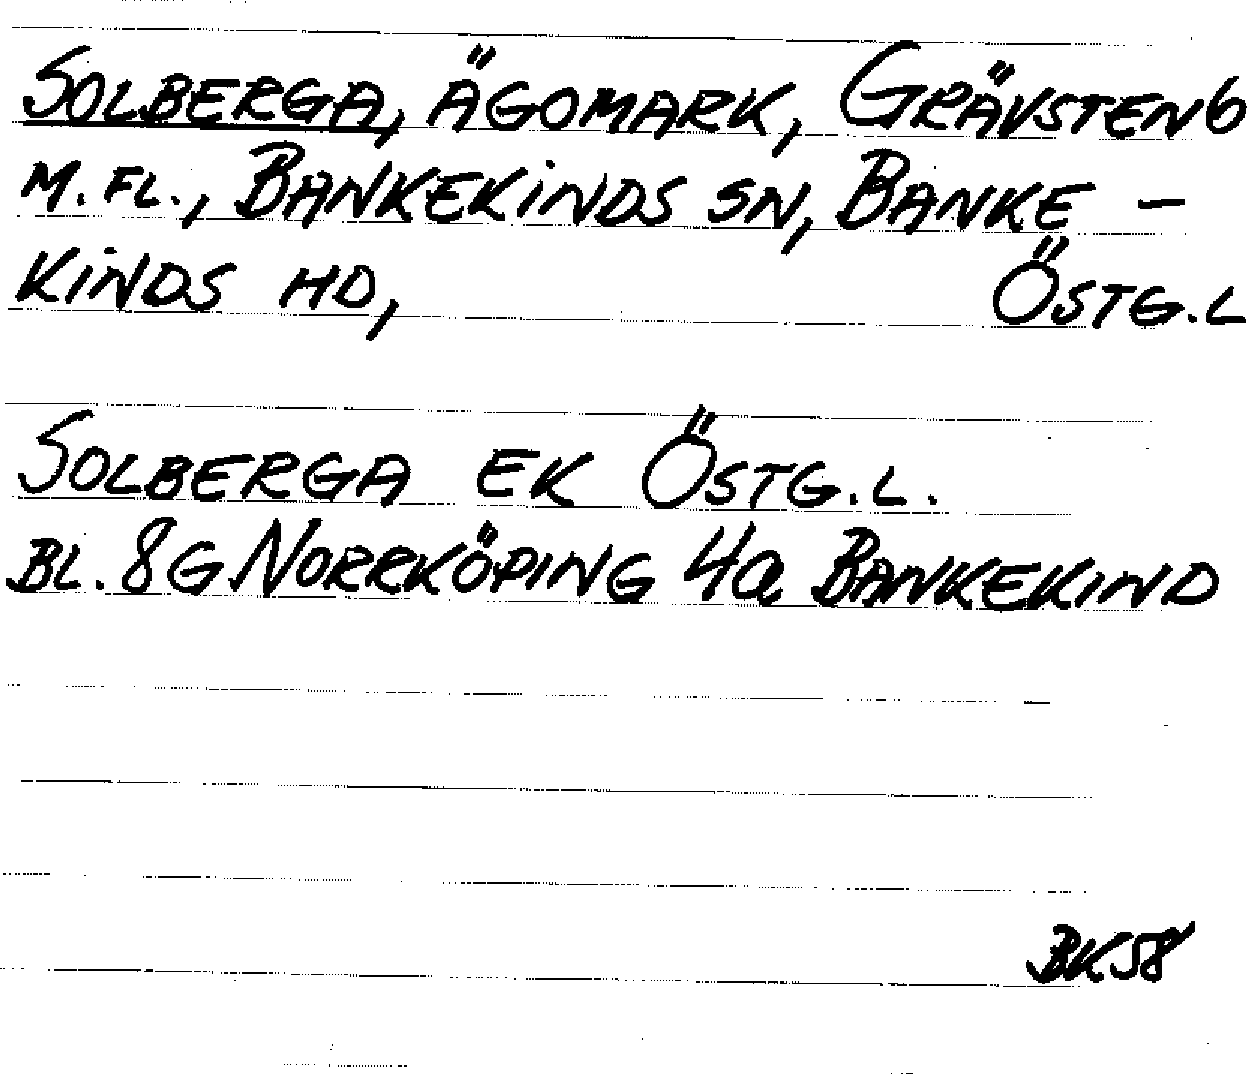 SOLBERGA, ÄGOMARK, GRÄVSTEN 6
M.FL., BANKEKINDS SN, BANKE-
KINDS HD, ÖSTG.L
SOLBERGA EK ÖSTG.L.
BL. 8G NORRKÖPING 4a BANKEKIND
BK58